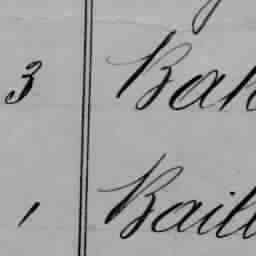 3 Bak
1 Baill